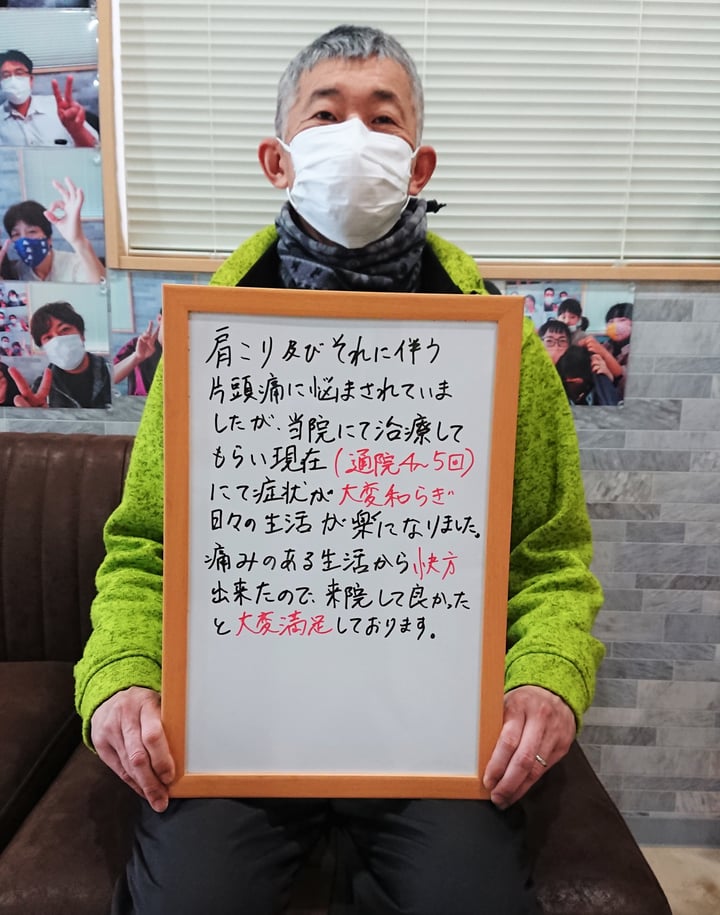 肩こり及びそれに伴う
片頭痛に悩まされていま
したが、当院にて治療して
もらい現在(通院4〜5回)
にて症状が大変和らぎ
日々の生活が楽になりました。
痛みのある生活から快方
出来たので、来院して良かった
と大変満足しております。